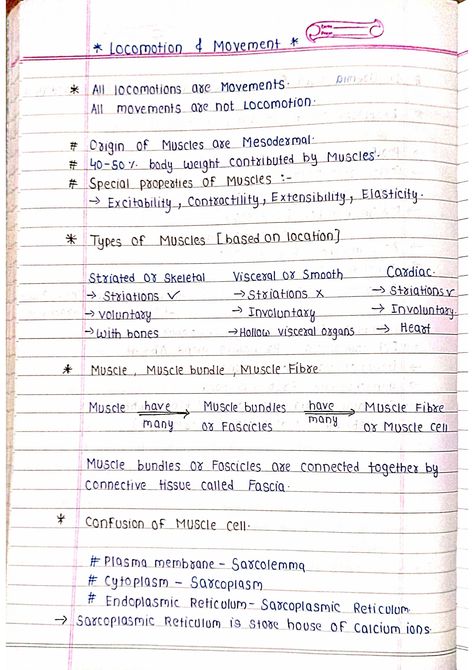 * Locomotion & Movement *
* All locomotions are Movements.
All movements are not Locomotion.
# Origin of Muscles are Mesodermal.
# 40-50% body weight contributed by Muscles.
# Special properties of Muscles :-
→ Excitability, Contractility, Extensibility, Elasticity.
* Types of Muscles [based on location]
Striated or Skeletal Visceral or Smooth Cardiac.
→ Striations ✓ → Striations x → Striations ✓
→ Voluntary → Involuntary → Involuntary.
→ With bones → Hollow visceral organs → Heart
* Muscle, Muscle bundle, Muscle Fibre
Muscle have many → Muscle bundles or Fascicles have many → Muscle Fibre or Muscle cell
Muscle bundles or Fascicles are connected together by
connective tissue called Fascia.
* Confusion of Muscle Cell.
# Plasma membrane - Sarcolemma
# Cytoplasm - Sarcoplasm
# Endoplasmic Reticulum - Sarcoplasmic Reticulum
→ Sarcoplasmic Reticulum is store house of Calcium ions.